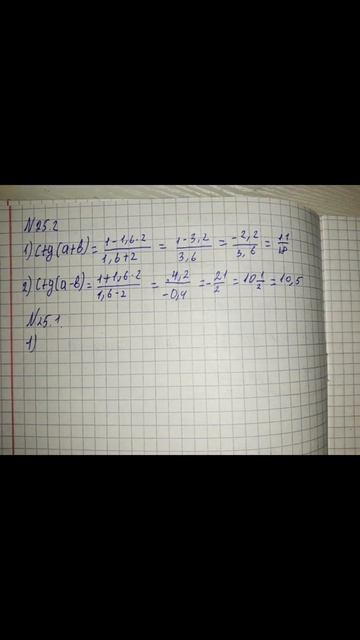 N25.2
1) ctg(a+b) = (1-1,6·2)/(1,6+2) = (1-3,2)/(3,6) = (-2,2)/(3,6) = 11/18
2) ctg(a-b) = (1+1,6·2)/(1,6-2) = (4,2)/(-0,4) = -21/2 = 10 1/2 = 10,5
N25.1.
1)